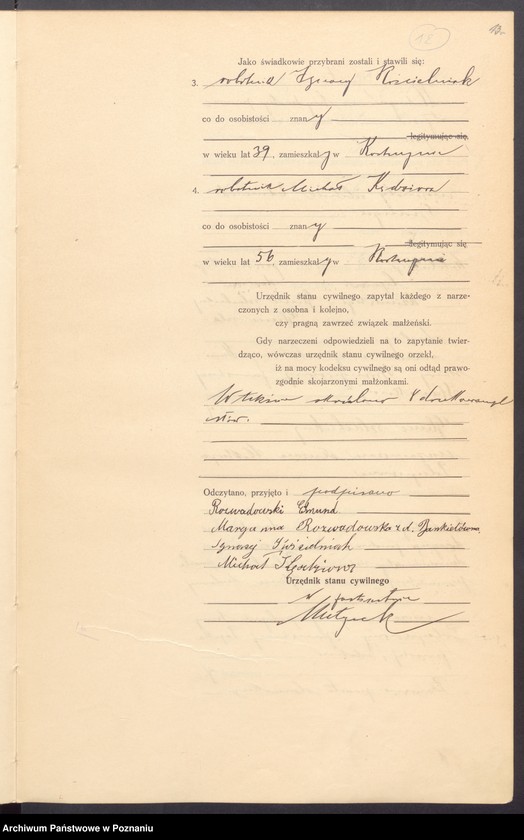 12
Jako świadkowie przybrani zostali i stawili się:
3. robotnik Ignacy Kościelniak
co do osobistości znany
legitymując się,
w wieku lat 39, zamieszkały w
4. robotnik Michał Kędziora
co do osobistości znany
legitymując się
w wieku lat 56 zamieszkały w
Urzędnik stanu cywilnego zapytał każdego z narze-
czonych z osobna i kolejno,
czy pragną zawrzeć związek małżeński.
Gdy narzeczeni odpowiedzieli na to zapytanie twier-
dząco, wówczas urzędnik stanu cywilnego orzekł,
iż na mocy kodeksu cywilnego są oni odtąd prawo-
zgodnie skojarzonymi małżonkami.
W tekście skreślono 4 drukowanych
słów.
Odczytano, przyjęto i podpisano
Rozwadowski Edmund
Marganna Rozwadowska z d.
Ignacy Kościelniak
Michał Kędziora
Urzędnik stanu cywilnego
w zastępstwie
Archiwum Państwowe w Poznaniu